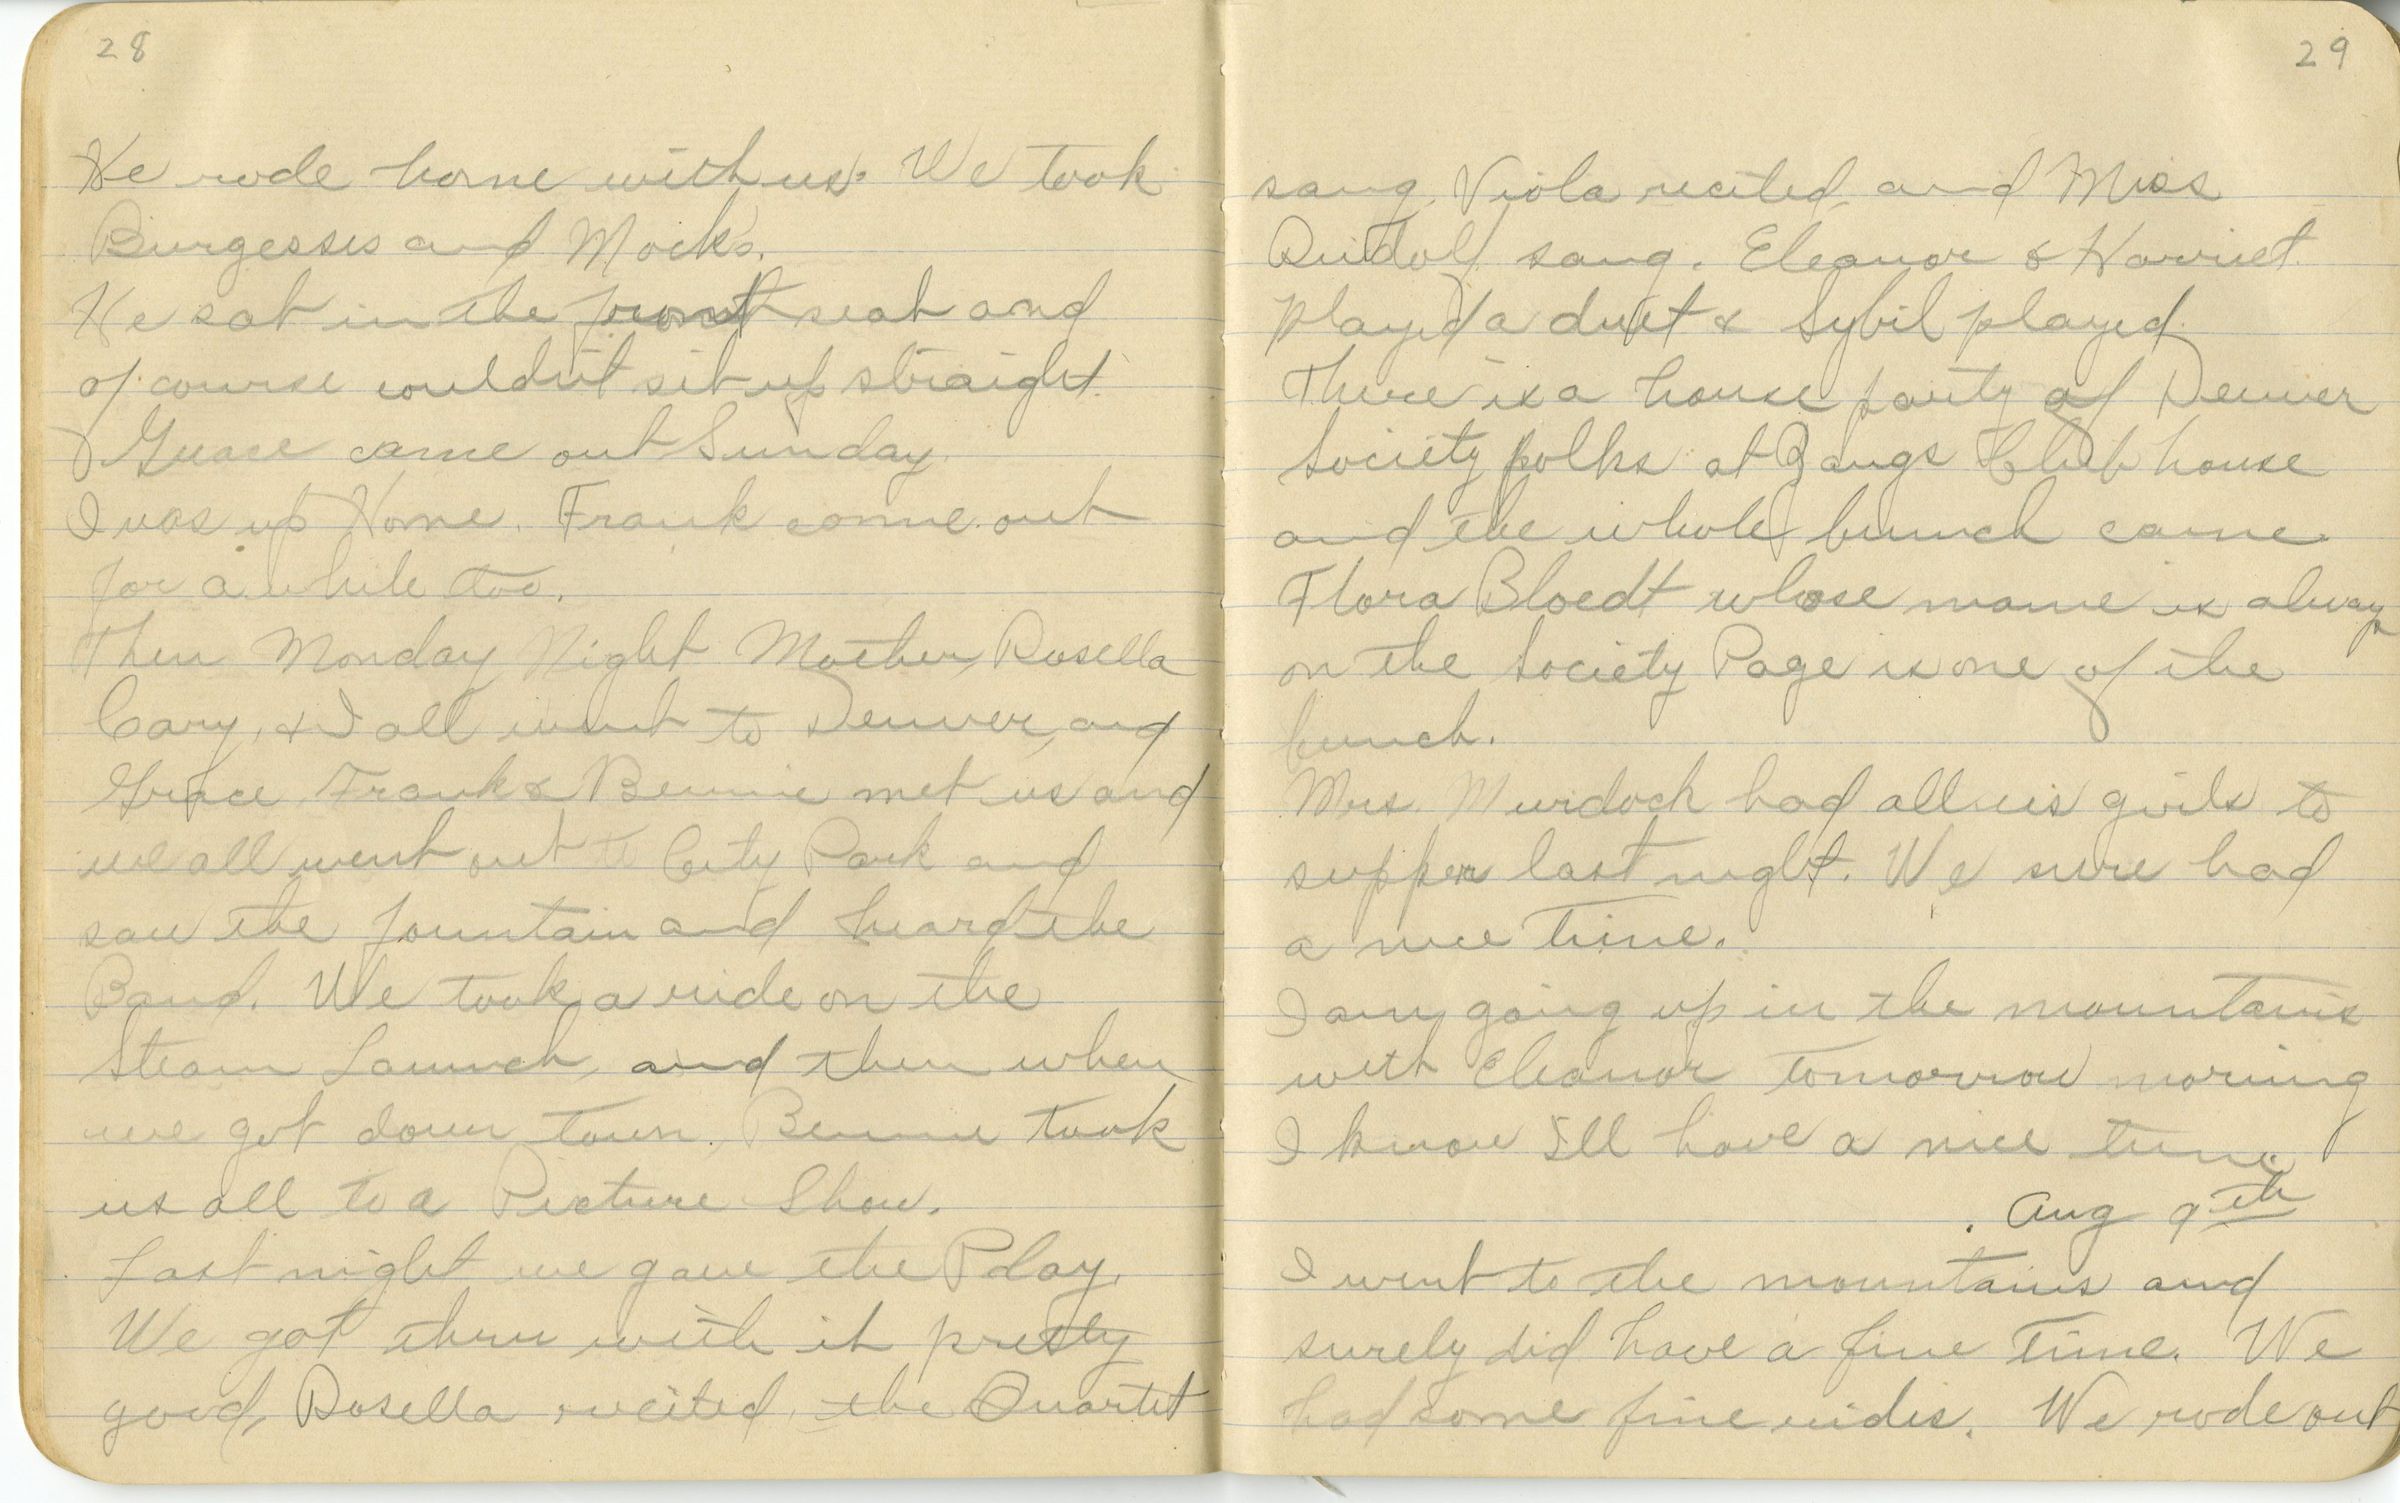 28
He rode home with us. We took
Burgesses and Mocks.
He sat in the front seat and
of course couldn't sit up straight.
Grace came out Sunday.
I was up Home. Frank came out
for a while too.
Then Monday Night Mother, Rosella
Cary, & I all went to Denver, and
Grace, Frank & Bennie met us and
we all went out to City Park and
saw the fountain and heard the
Band. We took a ride on the
Steam Launch, and then when
we got down town, Bennie took
us all to a Picture Show.
Last night we gave the Play.
We got thru with it pretty
good, Rosella recited, the Quartet
29
sang, Viola recited, and Miss
Ruidolf sang. Eleanor & Harriet
played a duet & Sybil played
There is a house party of Denver
Society folks at Zangs Club house
and the whole bunch came.
Flora Bloedt whose name is always
on the Society Page is one of the
bunch.
Mrs. Murdock had all us girls to
supper last night. We sure had
a nice time.
I am going up in the mountains
with Eleanor tomorrow morning
I know I'll have a nice time.
Aug 9th
I went to the mountains and
surely did have a fine time. We
had some fine rides. We rode out